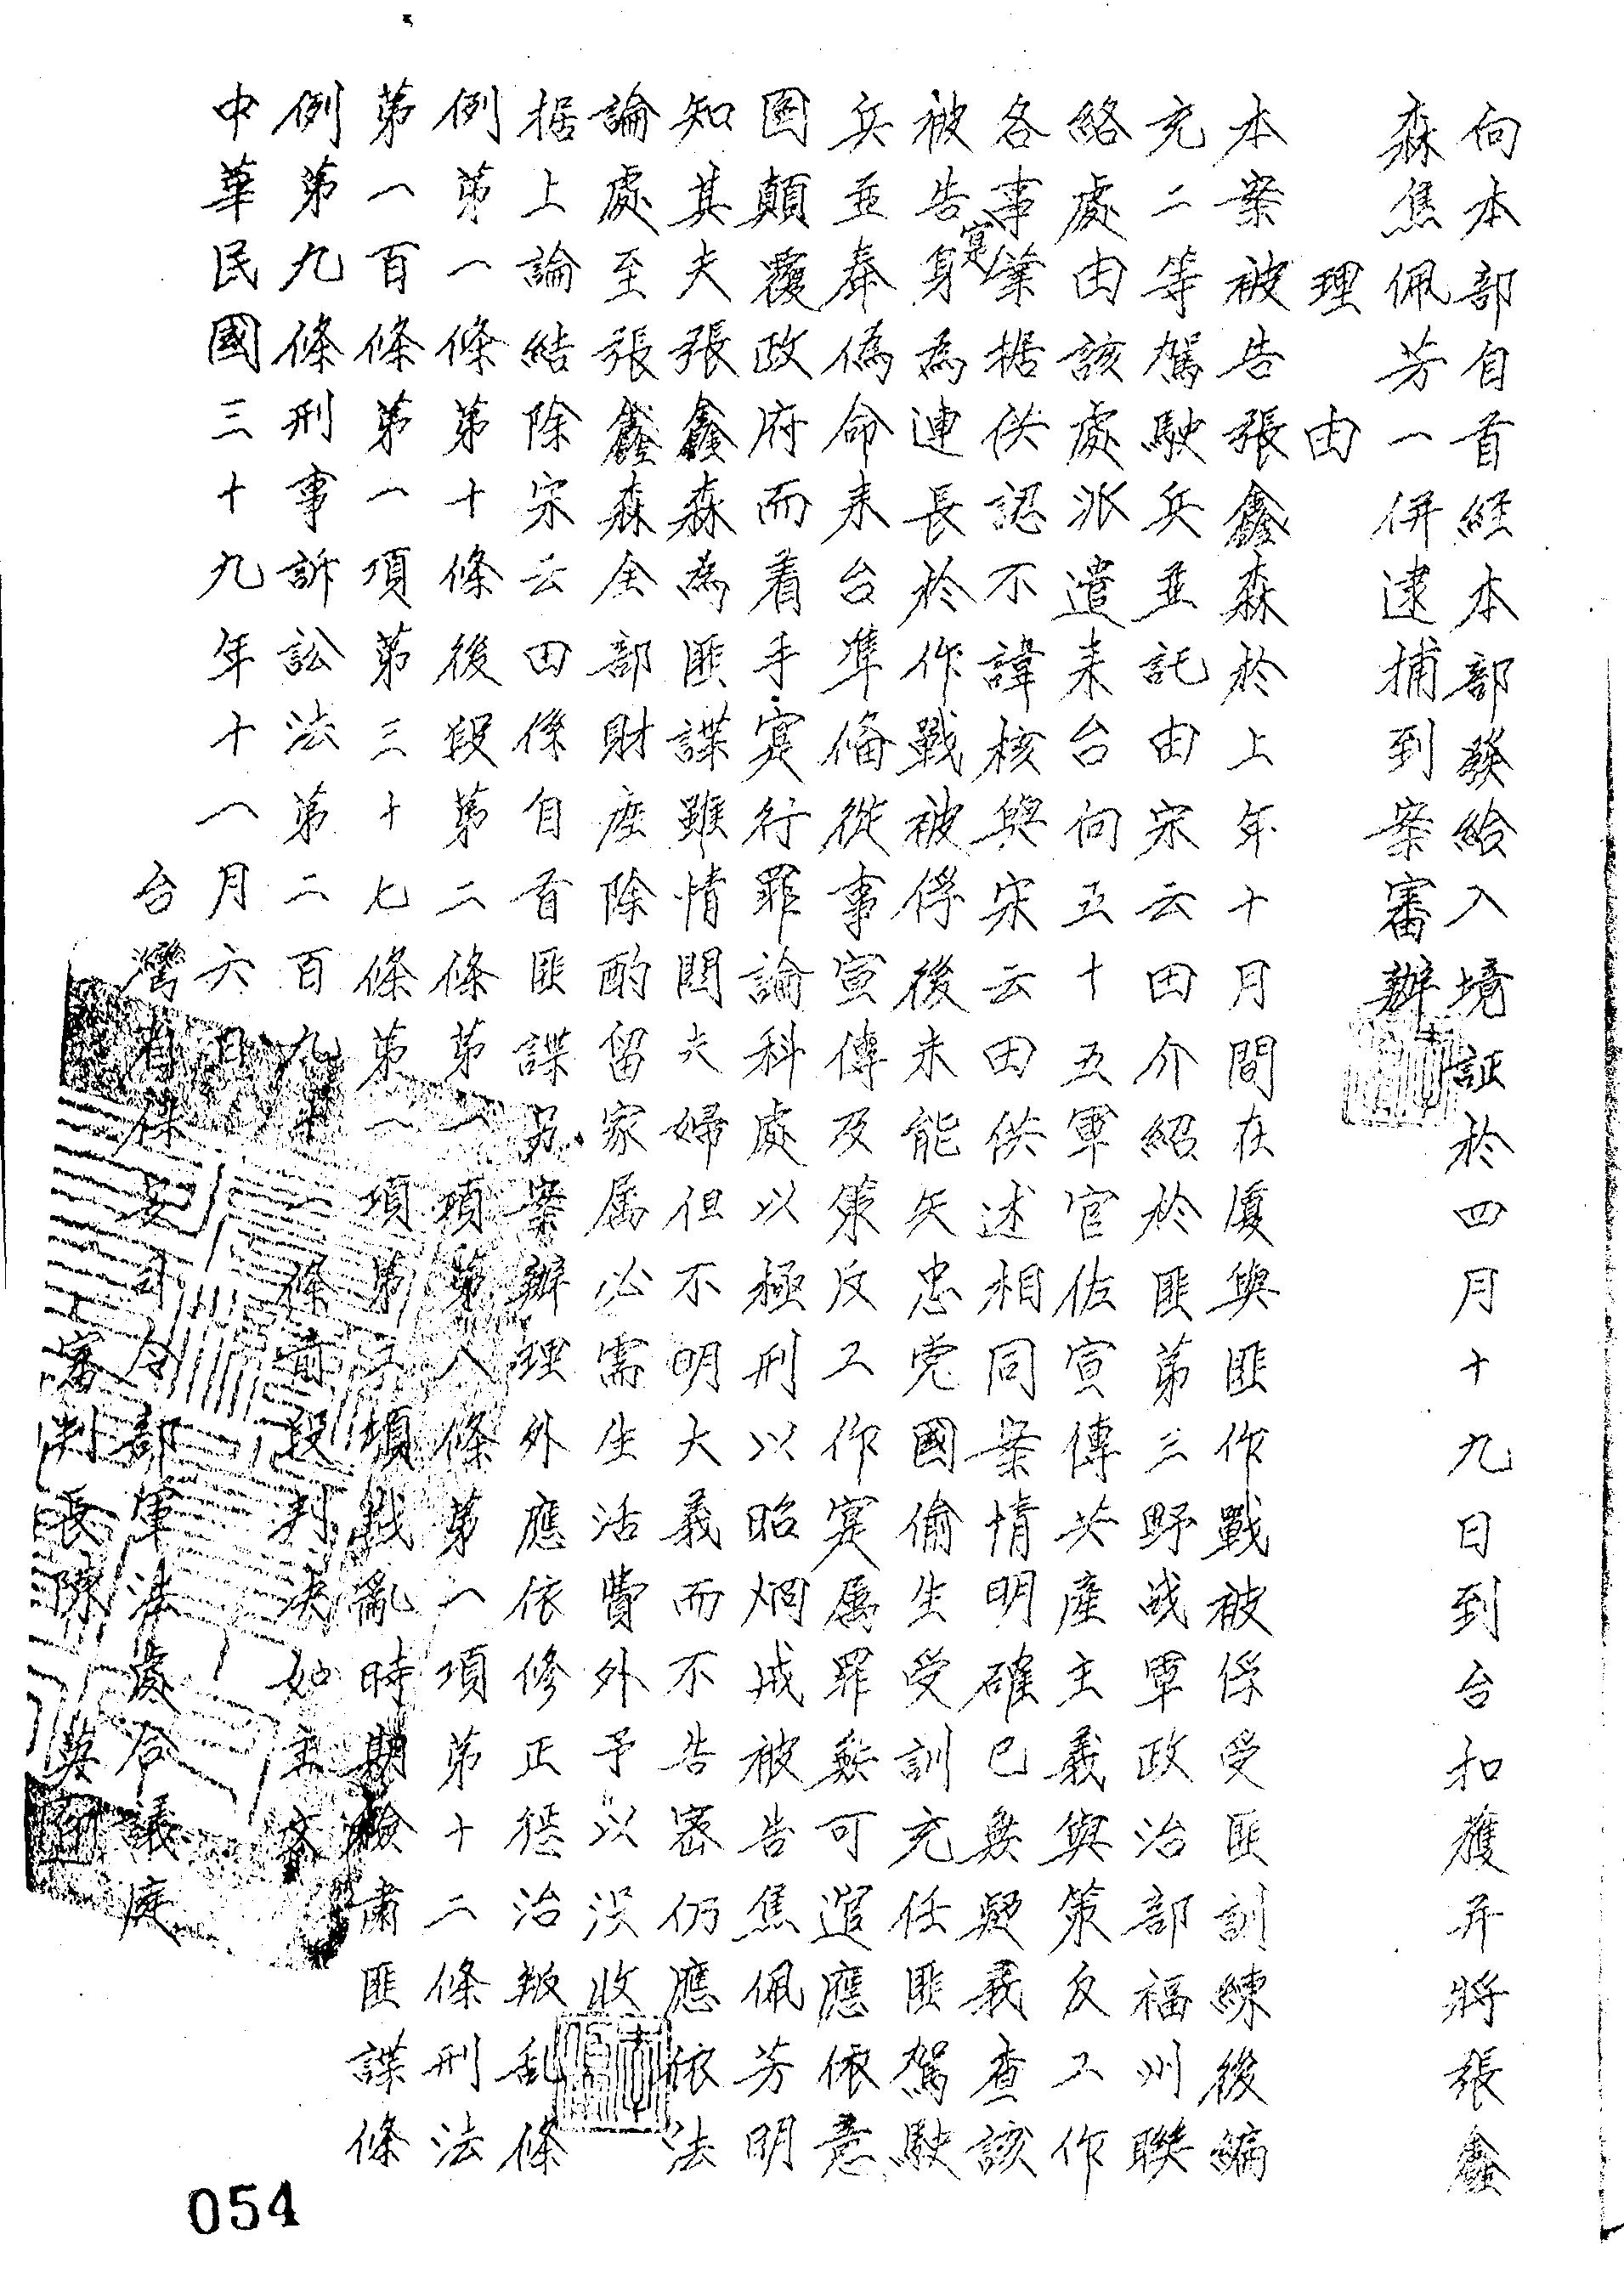 向本部自首経本部發給入境証於四月十九日到台扣獲并將張鑫
森焦佩芳一併逮捕到案審辦
理由
本案被告張鑫森於上年十月間在廈與匪作戰被俘受匪訓練後編
充二等駕駛兵並託由宋云田介紹於匪第三野战軍政治部福州聯
絡處由該處派遣来台向五十五軍官佐宣傳共產主義與策反工作
各事實業据供認不諱核與宋云田供述相同案情明確已無疑義查該
被告身為連長於作戰被俘後未能矢忠党國偷生受訓充任匪駕駛
兵並奉偽命来台準俻從事宣傳及策反工作寔属罪無可逭應依意
图顛覆政府而着手寔行罪論科處以極刑以昭炯戒被告焦佩芳明
知其夫張鑫森為匪諜雖情関夫婦但不明大義而不告密仍應依法
論處至張鑫森全部財産除酌留家属必需生活費外予以没收
据上論結除宋云田係自首匪諜另案辦理外應依修正懲治叛乱條
例第一條第十條後段第二條第一項第八條第一項第十二條刑法
第一百條第一項第三十七條第一項第二項戡亂時期檢肅匪諜條
例第九條刑事訴訟法第二百九十一條前段判决如主文
中華民國三十九年十一月六日
台灣省保安司令部軍法處合議庭
審判長陳英
054